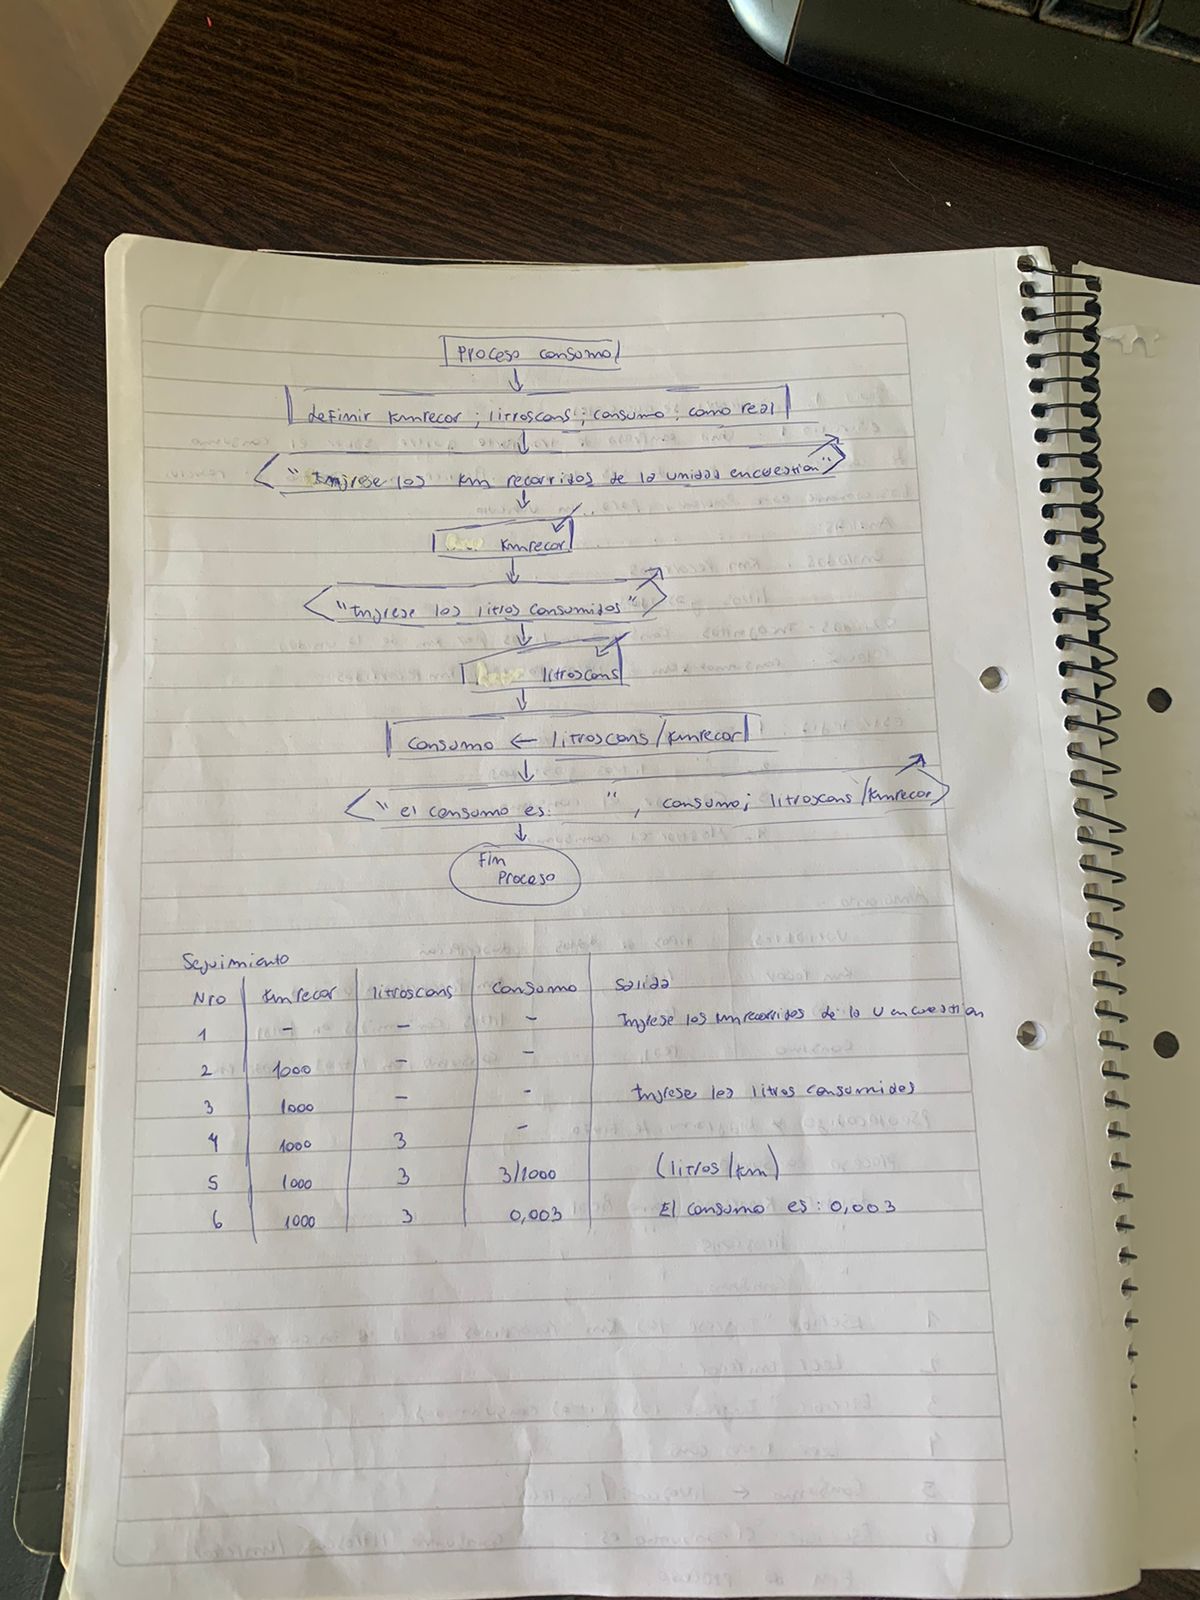 Proceso consumo
definir Kmrecor ; litroscons ; consumo ; como real
"Ingrese los Km recorridos de la unidad encuestion"
Kmrecor
"Ingrese los litros consumidos"
litroscons
Consumo ← litroscons/Kmrecor
"el consumo es: ", consumo; litroscons/Kmrecor
Fin
Proceso
Seguimiento
Nro Kmrecor litroscons Consumo Salida
1 - - - Ingrese los Kmrecorridos de la U encuestion
2 1000 - -
3 1000 - - Ingrese los litros consumidos
4 1000 3 -
5 1000 3 3/1000 (litros/km)
6 1000 3 0,003 El consumo es: 0,003